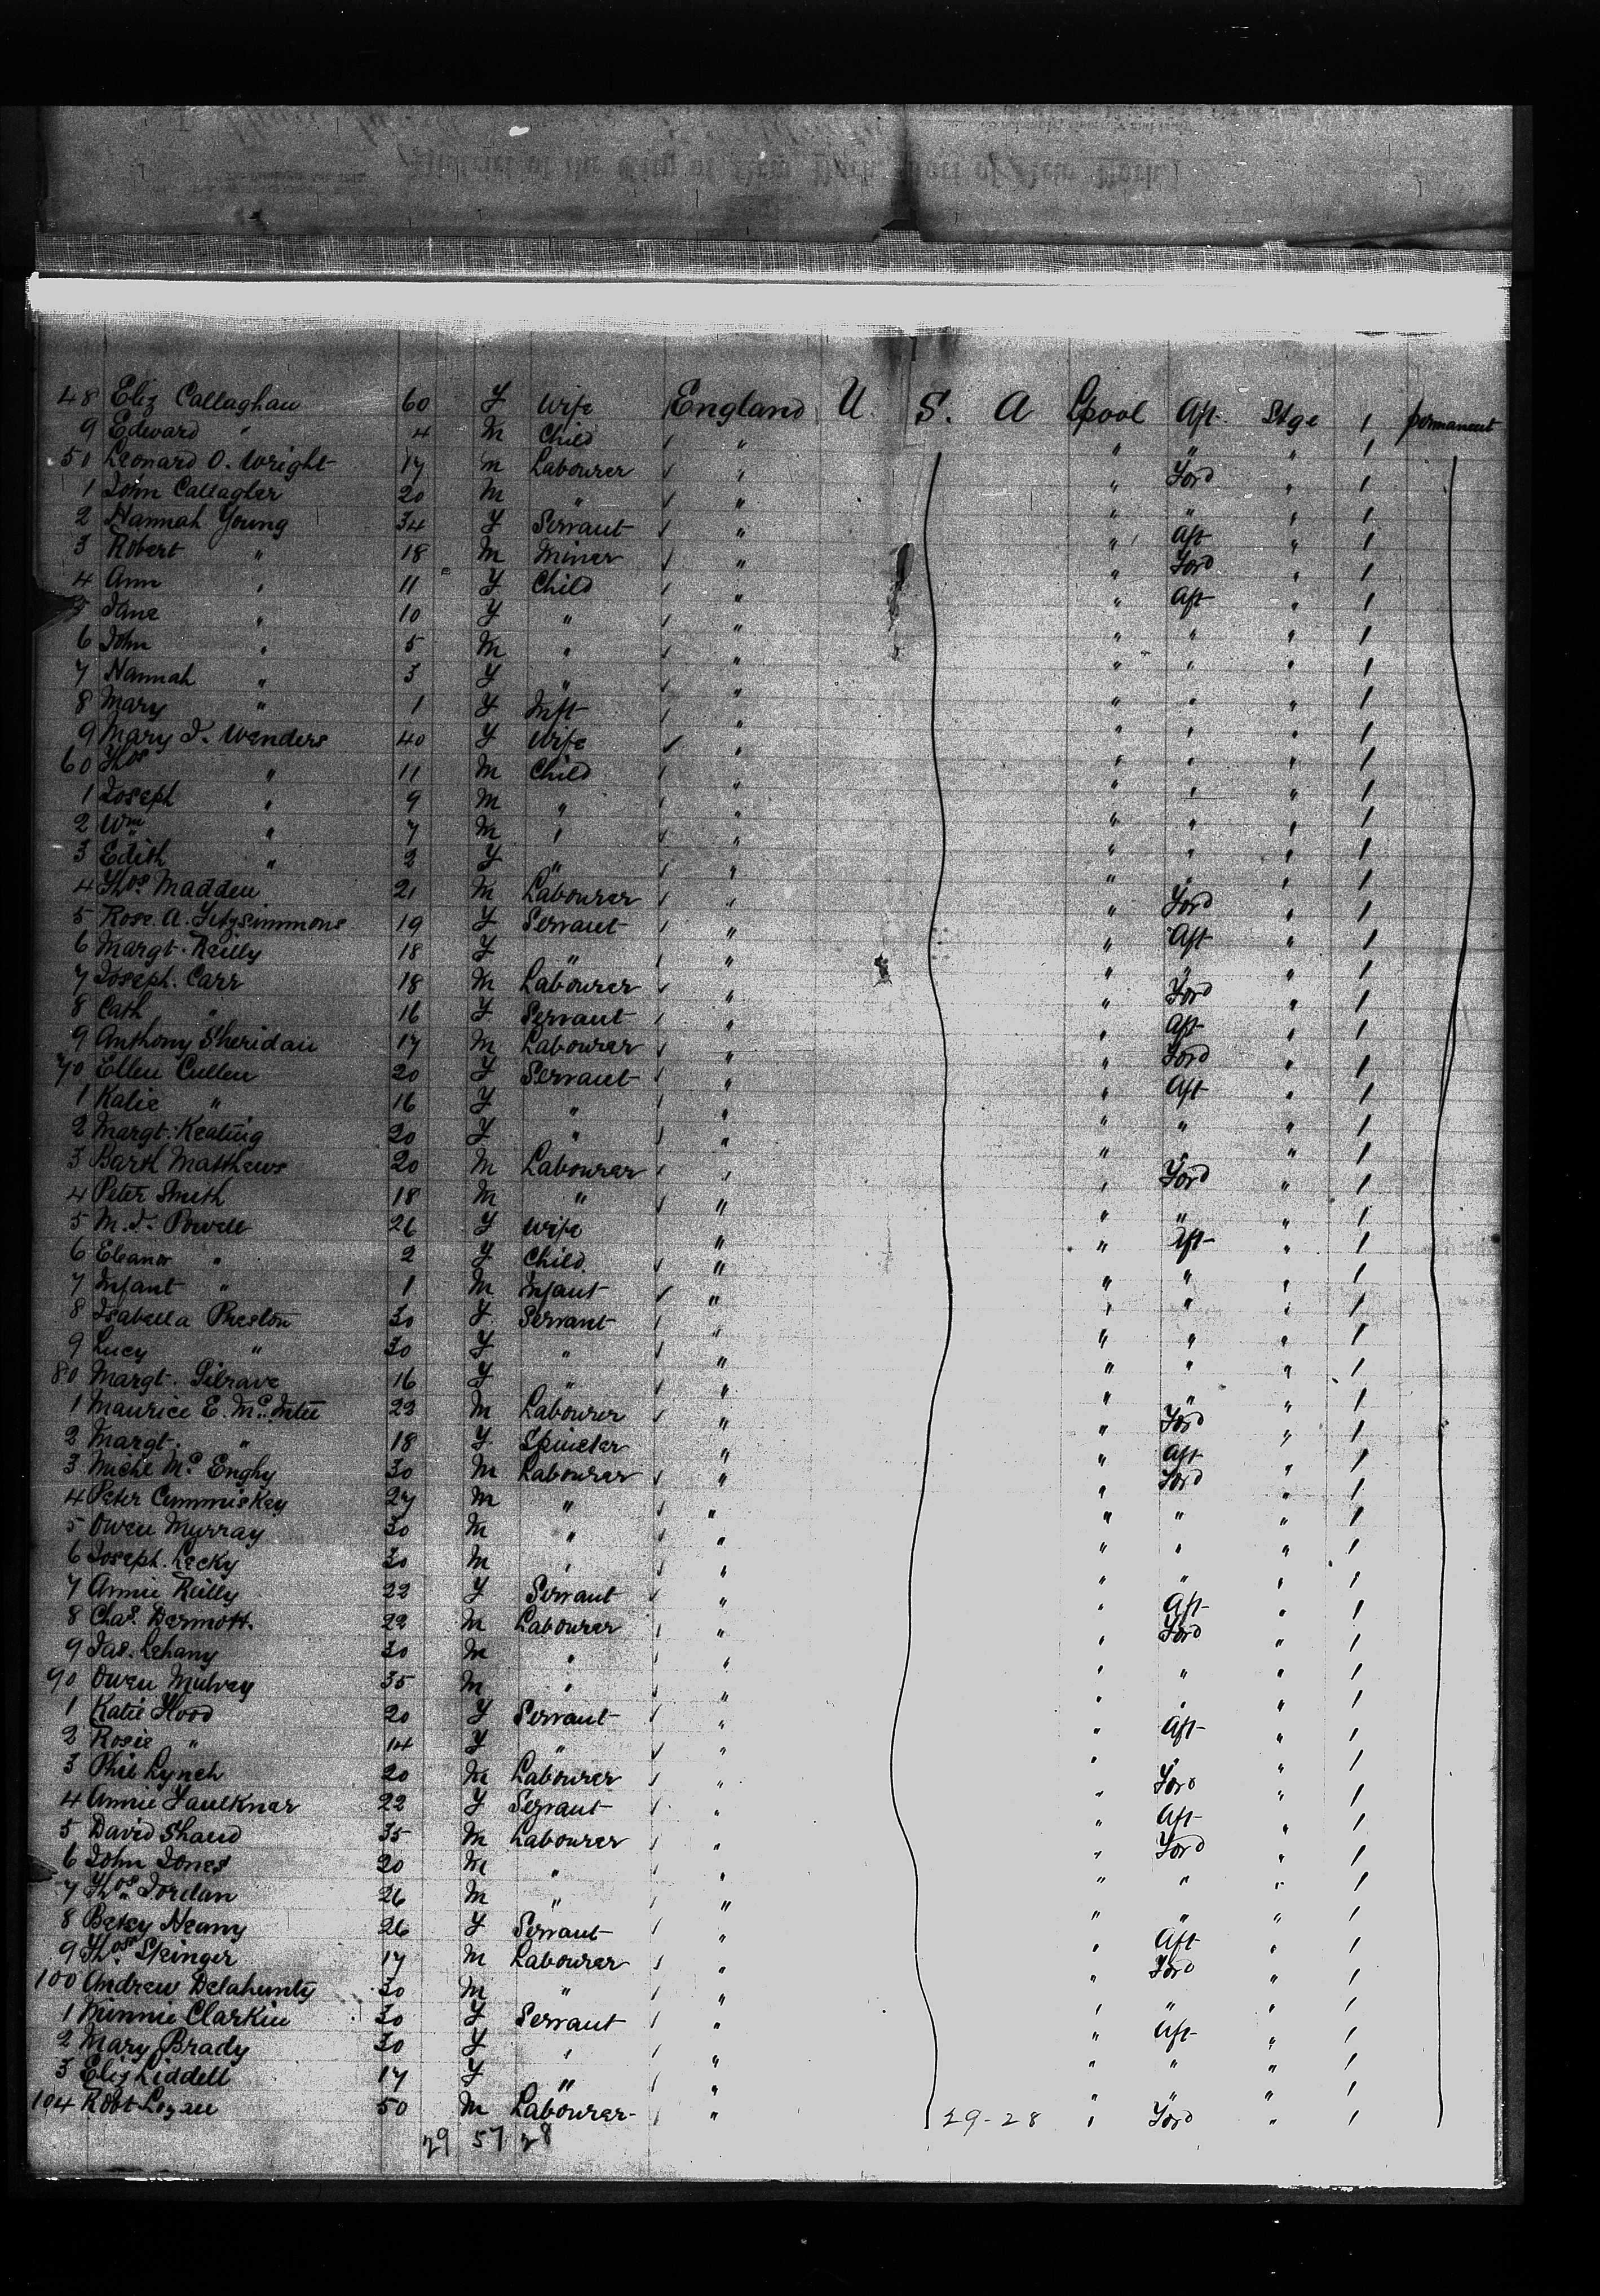 48 Eliz Callaghan 60 F Wife England U. S. A Lpool Aft Stge 1 permanent
9 Edward " 4 M Child " " " " 1
50 Leonard O. Wright 17 M Labourer " " Ford " 1
1 John Callagher 20 M " " " " " 1
2 Hannah Young 34 F Servant " " Aft " 1
3 Robert " 18 M Miner " " Ford " 1
4 Ann " 11 F Child " " Aft " 1
5 Jane " 10 F " " " " " 1
6 John " 5 M " " " " " 1
7 Hannah " 3 F " " " " " 1
8 Mary " 1 F Inft " " " " 1
9 Mary J. Wenders 40 F Wife " " " " 1
60 Thos " 11 M Child " " " " 1
1 Joseph " 9 M " " " " " 1
2 Wm " 7 M " " " " " 1
3 Edith " 2 F " " " " " 1
4 Thos Madden 21 M Labourer " " Ford " 1
5 Rose A. Fitzsimmons 19 F Servant " " Aft " 1
6 Margt. Reilly 18 F " " " " " 1
7 Joseph. Carr 18 M Labourer " " Ford " 1
8 Cath " 16 F Servant " " Aft " 1
9 Anthony Sheridan 17 M Labourer " " Ford " 1
70 Ellen Cullen 20 F Servant " " Aft " 1
1 Katie " 16 F " " " " " 1
2 Margt. Keating 20 F " " " " " 1
3 Barth Matthews 20 M Labourer " " Ford " 1
4 Peter Smith 18 M " " " " " 1
5 M. J. Powell 26 F Wife " " Aft " 1
6 Eleanor " 2 F Child " " " " 1
7 Infant " 1 M Infant " " " " 1
8 Isabella Preston 30 F Servant " " " " 1
9 Lucy " 30 F " " " " " 1
80 Margt. 16 F " " " " " 1
1 Maurice E. Mc 22 M Labourer " " Ford " 1
2 Margt. " 18 F Spinster " " Aft " 1
3 Michl Mc Enghy 30 M Labourer " " Ford " 1
4 Peter Cummiskey 27 M " " " " " 1
5 Owen Murray 30 M " " " " " 1
6 Joseph. Lecky 30 M " " " " " 1
7 Annie Reilly 22 F Servant " " Aft " 1
8 Chas. Dermott. 22 M Labourer " " Ford " 1
9 Jas. Lehany 30 M " " " " " 1
90 Owen Mulvey 35 M " " " " " 1
1 Katie Hood 20 F Servant " " Aft " 1
2 Rosie " 14 F " " " " " 1
3 Phil Lynch 20 M Labourer " " Ford " 1
4 Annie Faulkner 22 F Servant " " Aft " 1
5 David Shand 35 M Labourer " " Ford " 1
6 John Jones 20 M " " " " " 1
7 Thos. Jordan 26 M " " " " " 1
8 Betsy Neany 26 F Servant " " Aft " 1
9 Thos Springer 17 M Labourer " " Ford " 1
100 Andrew Delahunty 30 M " " " " " 1
1 Minnie Clarkin 30 F Servant " " Aft " 1
2 Mary Brady 30 F " " " " " 1
3 Eliz Liddell 17 F " " " " " 1
104 Robt Logan 50 M Labourer " 29-28 " Ford " 1
29 57 28